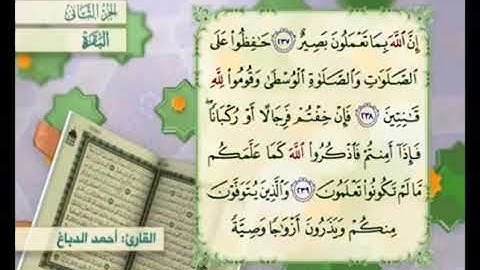 الجزء الثاني
البقرة
إِنَّ اللَّهَ بِمَا تَعْمَلُونَ بَصِيرٌ ٢٣٧ حَافِظُوا عَلَى
الصَّلَوَاتِ وَالصَّلَاةِ الْوُسْطَى وَقُومُوا لِلَّهِ
قَانِتِينَ ٢٣٨ فَإِنْ خِفْتُمْ فَرِجَالًا أَوْ رُكْبَانًا
فَإِذَا أَمِنتُمْ فَاذْكُرُوا اللَّهَ كَمَا عَلَّمَكُم
مَّا لَمْ تَكُونُوا تَعْلَمُونَ ٢٣٩ وَالَّذِينَ يُتَوَفَّوْنَ
مِنكُمْ وَيَذَرُونَ أَزْوَاجًا وَصِيَّةً
القارئ: أحمد الدباغ